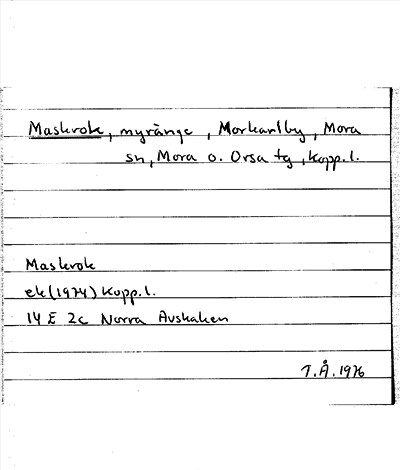 Maskrok, myränge, Morkarlby, Mora
sn, Mora o. Orsa tg, Kopp.l.
Maskrok
ek (1974) Kopp.l.
14 E 2c Norra Avskaken
T.Å. 1976